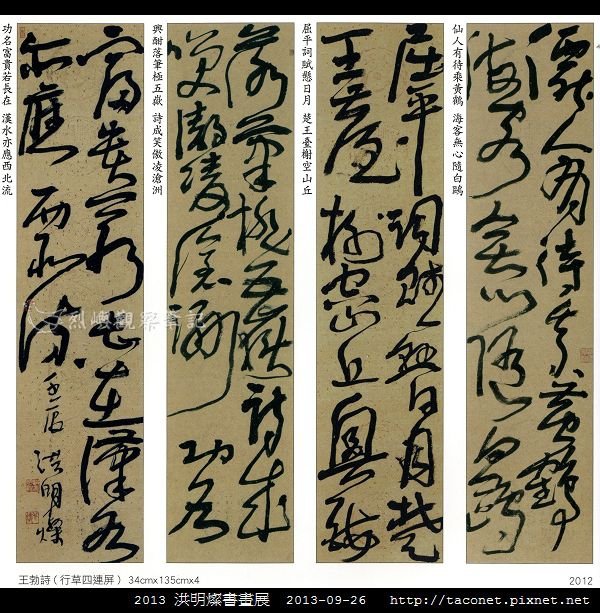 仙人有待乘黃鶴 海客無心隨白鷗
僊人有待乘黃鶴
海客無心隨白鷗
屈平詞賦懸日月 楚王臺榭空山丘
屈平詞賦懸日月楚
王臺榭空山丘興酣
興酣落筆極五嶽 詩成笑傲凌滄洲
落筆搖五嶽詩成
笑傲凌滄洲功名
功名富貴若長在 漢水亦應西北流
富貴若長在漢水
亦應西北流 壬辰 洪明燦
烈嶼觀察筆記
王勃詩(行草四連屏) 34cmx135cmx4
2012
2013 洪明燦書畫展 2013-09-26 http://taconet.pixnet.net/blog